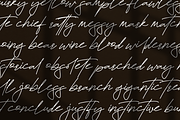 sample flawless
te chief salty messy mask match
oing bear wine blood wilderness
istorical obsolete parched way
jobless branch gigantic
t conclude justify instinctive bu